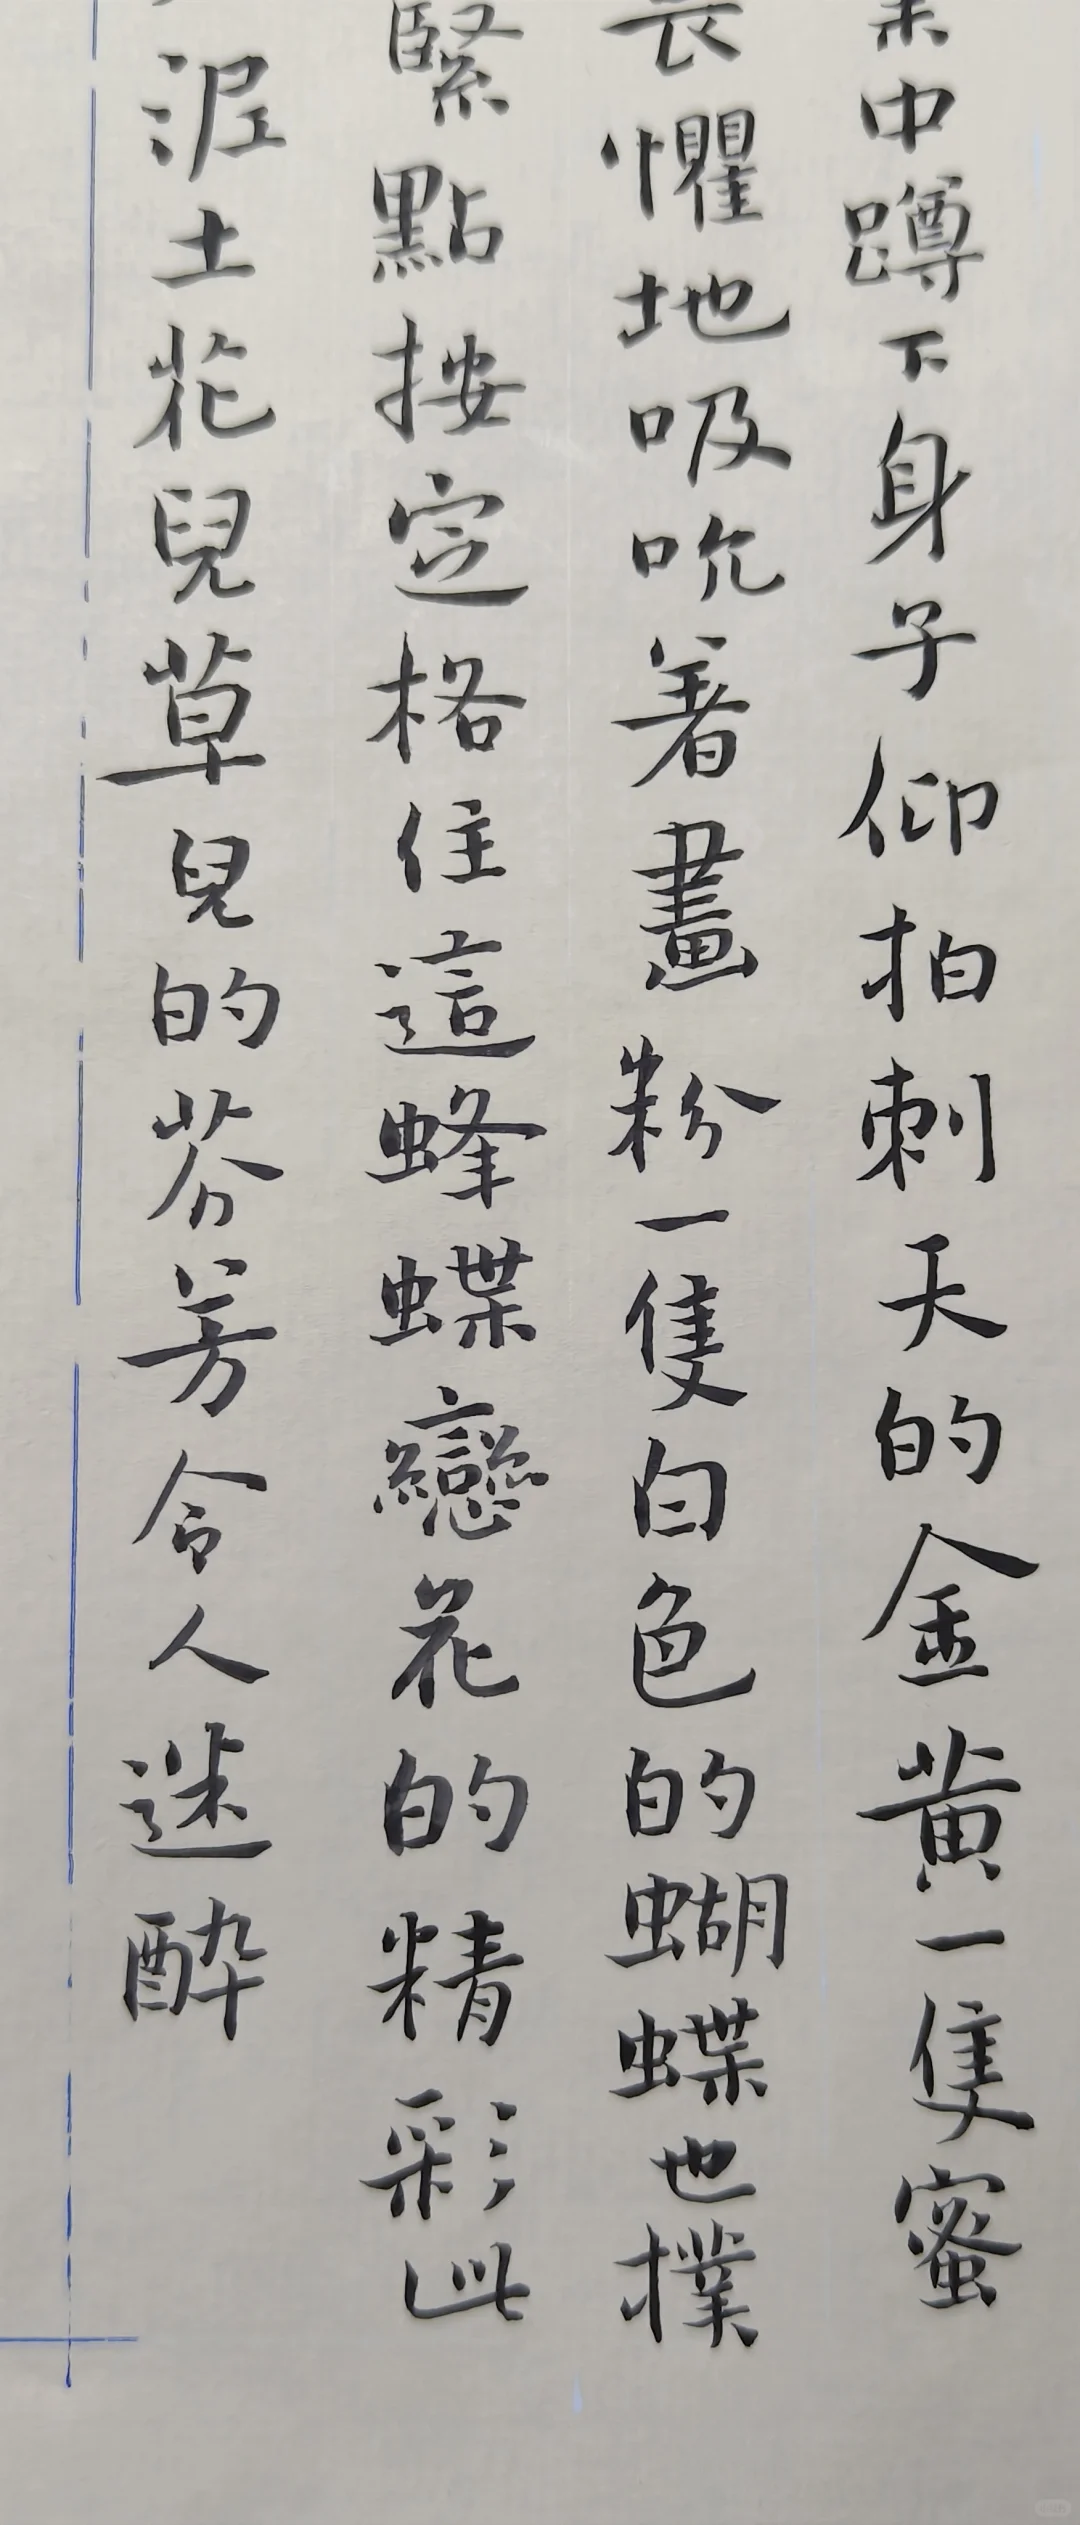 中蹲下身子仰拍刺天的金黄一隻蜜
懼地吸吮著畫粉一隻白色的蝴蝶也撲
緊點按定格住這蜂蝶戀花的精彩此
泥土花兒草兒的芬芳令人迷醉